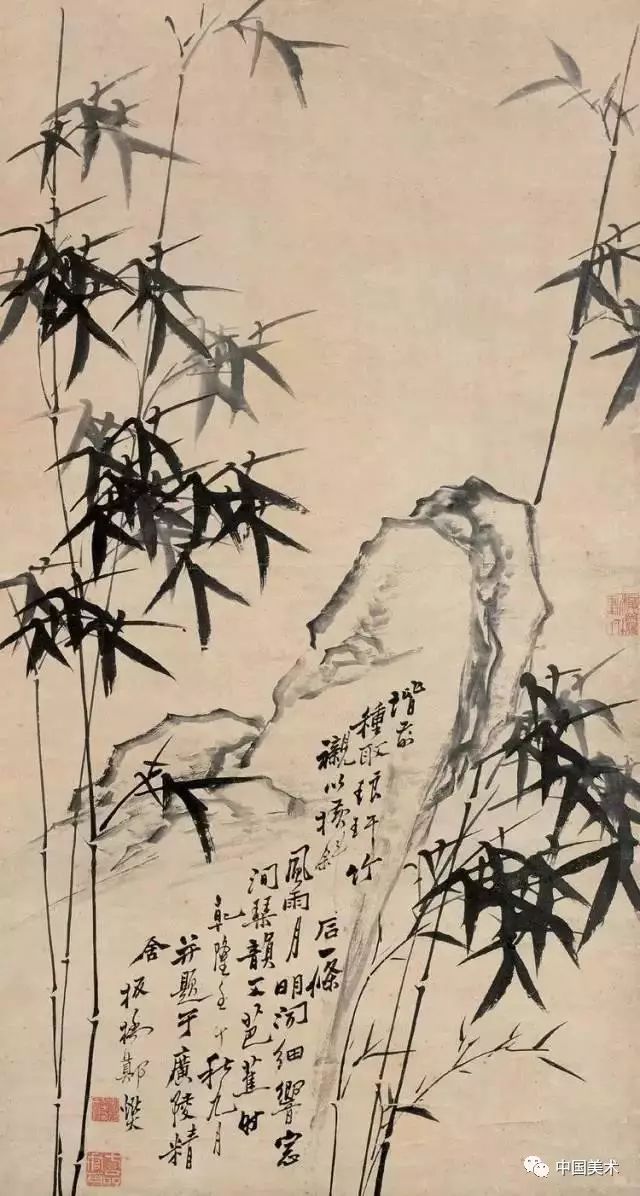 階前
種取琅玕竹
襯以橫斜
石一條
風雨月明聞細響窓
間琴韻又芭蕉時
乾隆壬午秋九月
并題于廣陵精
舍 板橋鄭燮
中国美术